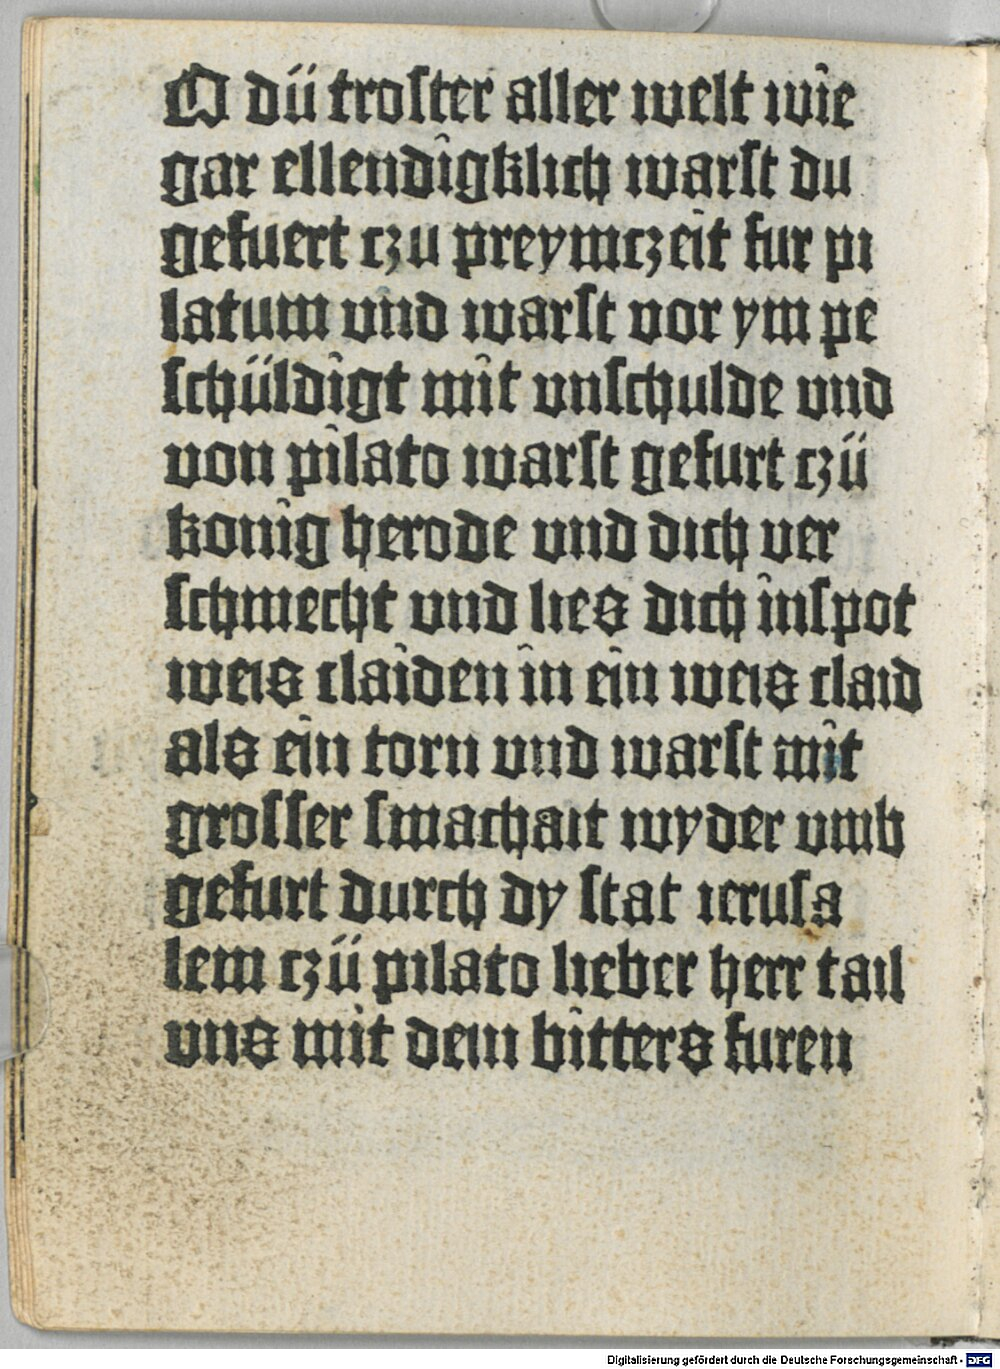 O dü troſter aller welt wie
gar ellendigklich warſt du
gefuert czu preymczeit fur pi
latum vnd warſt vor ym pe
ſchüldigt mit vnſchulde vnd
von pilato warſt gefurt czü
konig herode vnd dich ver
ſchmecht vnd lies dich inſpot
weis claiden in ein weis claid
als ein torn vnd warſt mit
groſſer ſmachait wyder vmb
gefurt durch dy ſtat ieruſa
lem czü pilato lieber herr tail
vns mit dein bitters furen
Digitalisierung gefördert durch die Deutsche Forschungsgemeinschaft - DFG